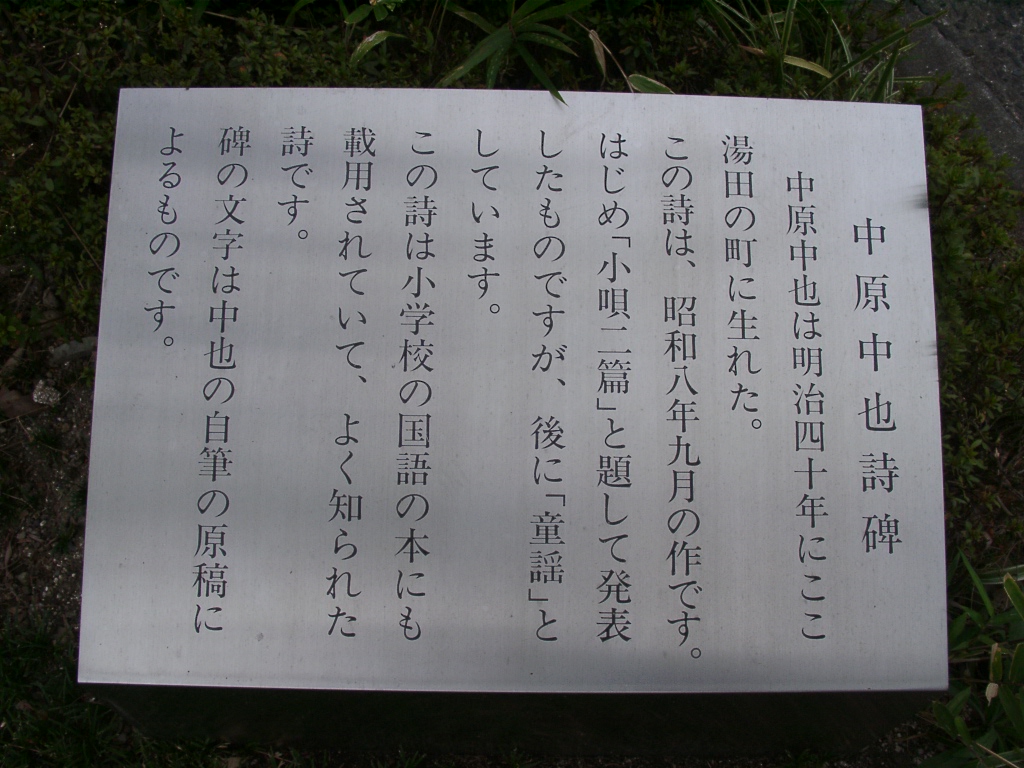 中原中也詩碑
中原中也は明治四十年にここ
湯田の町に生れた。
この詩は、昭和八年九月の作です。
はじめ「小唄二篇」と題して発表
したものですが、後に「童謡」と
しています。
この詩は小学校の国語の本にも
載用されていて、よく知られた
詩です。
碑の文字は中也の自筆の原稿に
よるものです。